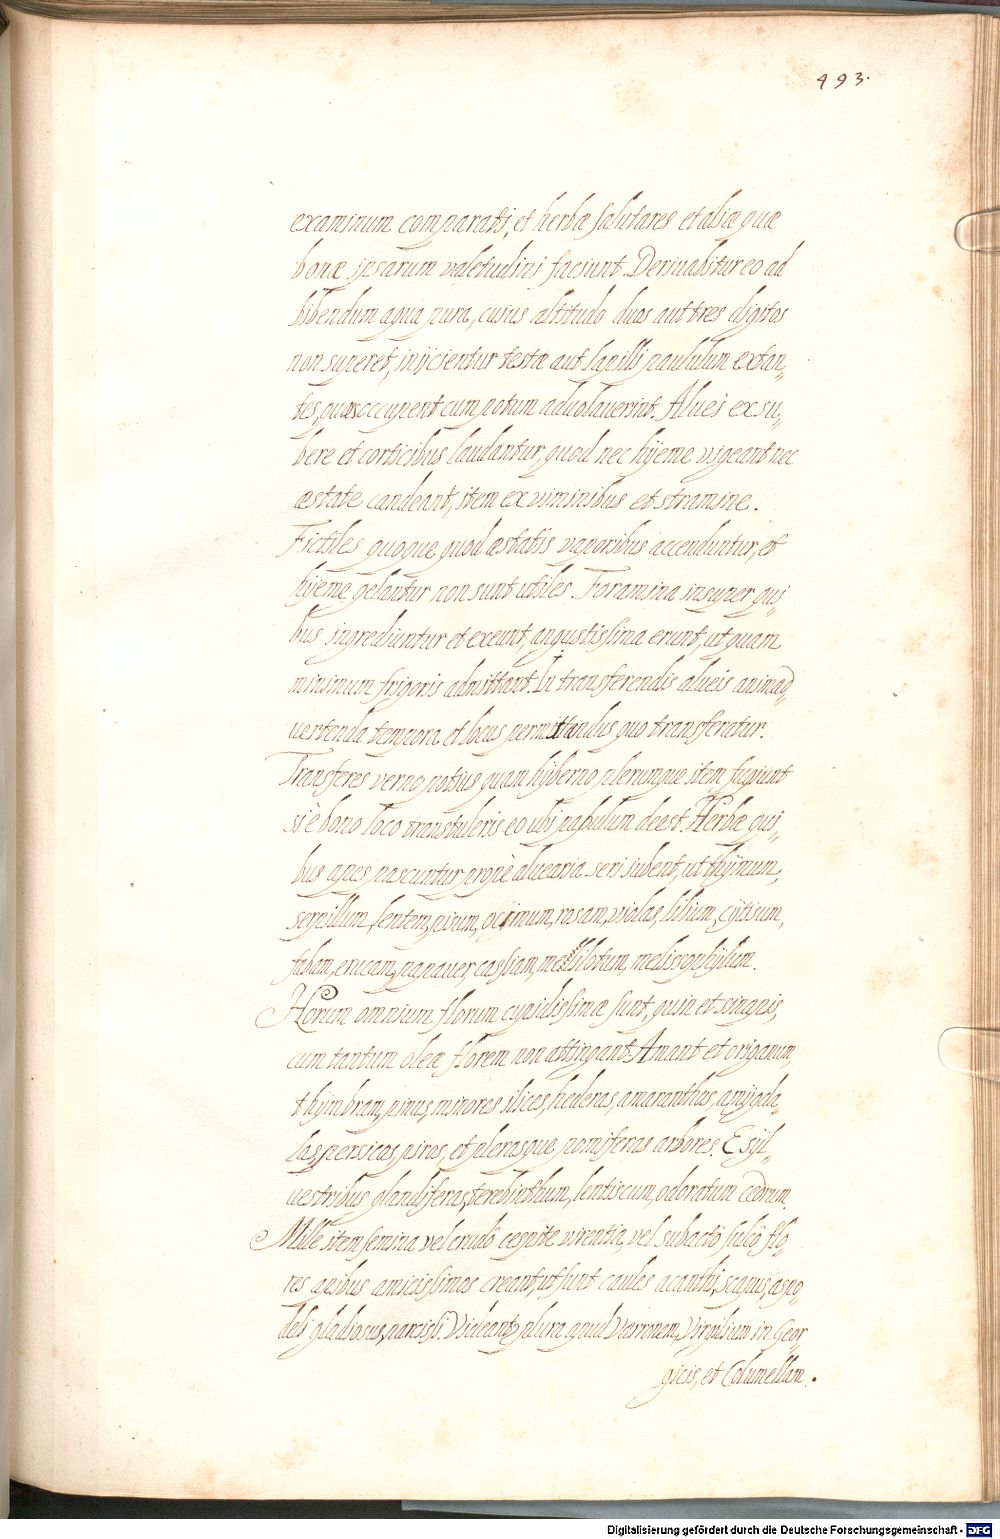 493.
examinum comparati, et herbæ salutares et aliæ quæ
bonæ ipsarum valetudini faciunt. Deriuabitur eo ad
bibendum aqua pura, cuius altitudo duos aut tres digitos
non superet, inijcientur testæ aut lapilli paululum extan„
tes, quæs occupent cum potum aduolauerint. Aluei ex su„
bere et corticibus laudantur, quod nec hÿeme vigeant nec
æstate candeant, item ex viminibus et stramine.
Fictiles quoque quod æstatis vaporibus accenduntur, et
hÿeme gelantur non sunt utiles. Foramina insuper qui„
bus ingrediuntur et exeunt, angustissima erunt, ut quam
minimum frigoris admittant. In transferendis alueis animad„
uertenda tempora et locus permittendus quo transferatur.
Transferes verno potius quam hÿberno plerunque item fugiunt
si è bono loco transtuleris eo ubi pabulum deest. Herbæ qui„
bus apes pascuntur propè aluearia seri iubent, ut thÿmum,
serpillum, lentem, pisum, ocimum, rosam, violas, lilium, cÿtisum,
fabam, erucam, papauer, cassiam, mellilotum, melissophÿlum.
Horum omnium florum cupidissimæ sunt, quin et sinapis,
cum tantum oleæ florem non attingant. Amant et origanum,
thÿmbram, pinus, minores ilices, hederas, amaranthos, amÿgda„
las, persicos, piros, et plerasque pomiferas arbores. E sÿl„
uestribus glandiferas, terebinthum, lentiscum, odoratum cedrum.
Mille item semina vel crudô cespite virentia, vel subactô sulcô flo„
res apibus amicissimos creant, ut sunt caules acanthi, scapus, aspo„
deli gladiosus, narcissi. Videantur plura apud Varronem, Virgilium in Geor„
gicis, et Columellam.
Digitalisierung gefördert durch die Deutsche Forschungsgemeinschaft - DFG